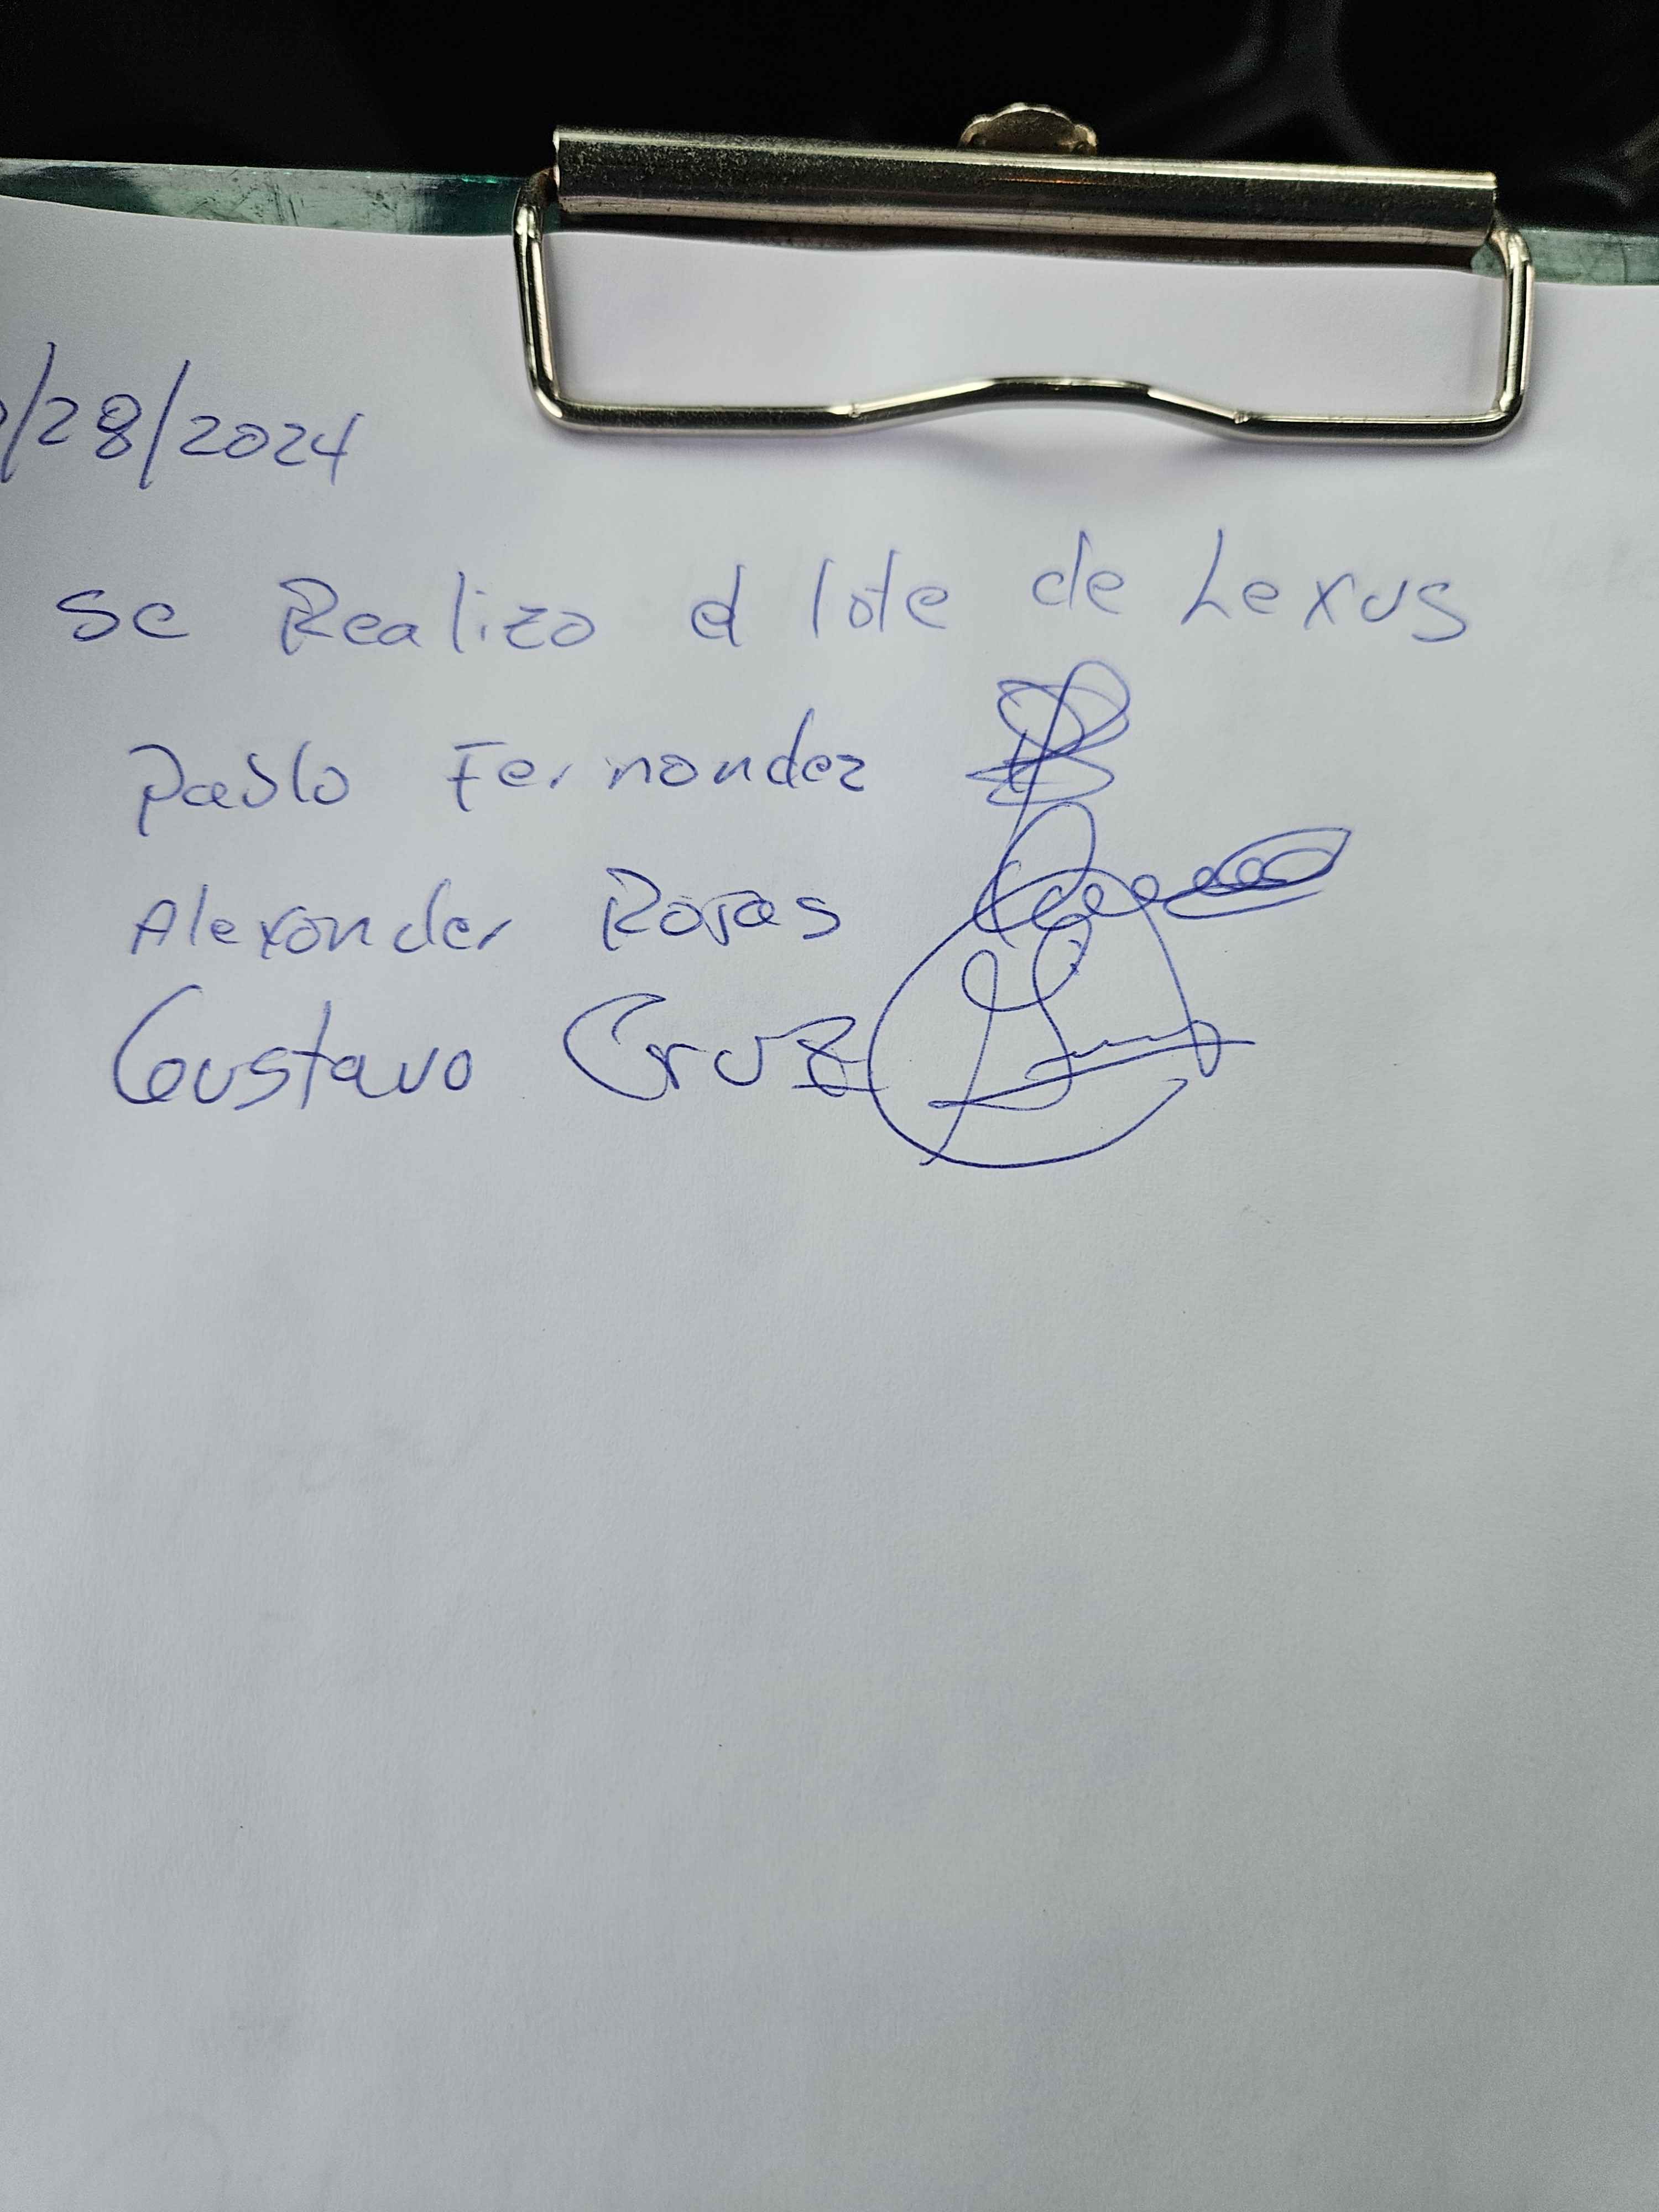 /28/2024
Se Realizo el lote de Lexus
Pablo Fernandez
Alexander Rojas
Gustavo Cruz